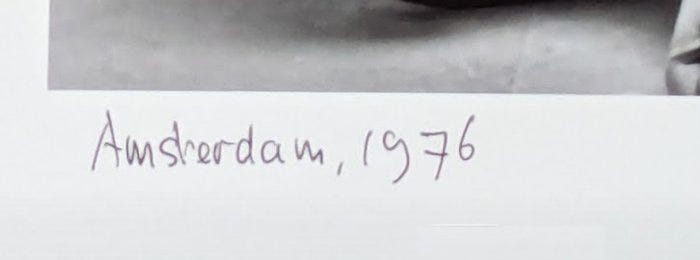 Amsterdam, 1976